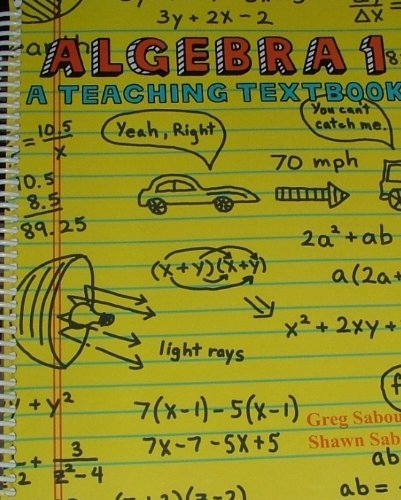 3y + 2x - 2
Δx
ALGEBRA 1
A TEACHING TEXTBOOK
= 10.5
x
Yeah, Right
You can't
catch me.
70 mph
10.5
8.5
89.25
2a² + ab
(x+y)(x+y)
a(2a+
x² + 2xy +
light rays
+ y²
7(x-1) - 5(x-1)
Greg Sabou
7x - 7 - 5x + 5
Shawn Sab
+ 3
2 z² - 4
ab
ab =